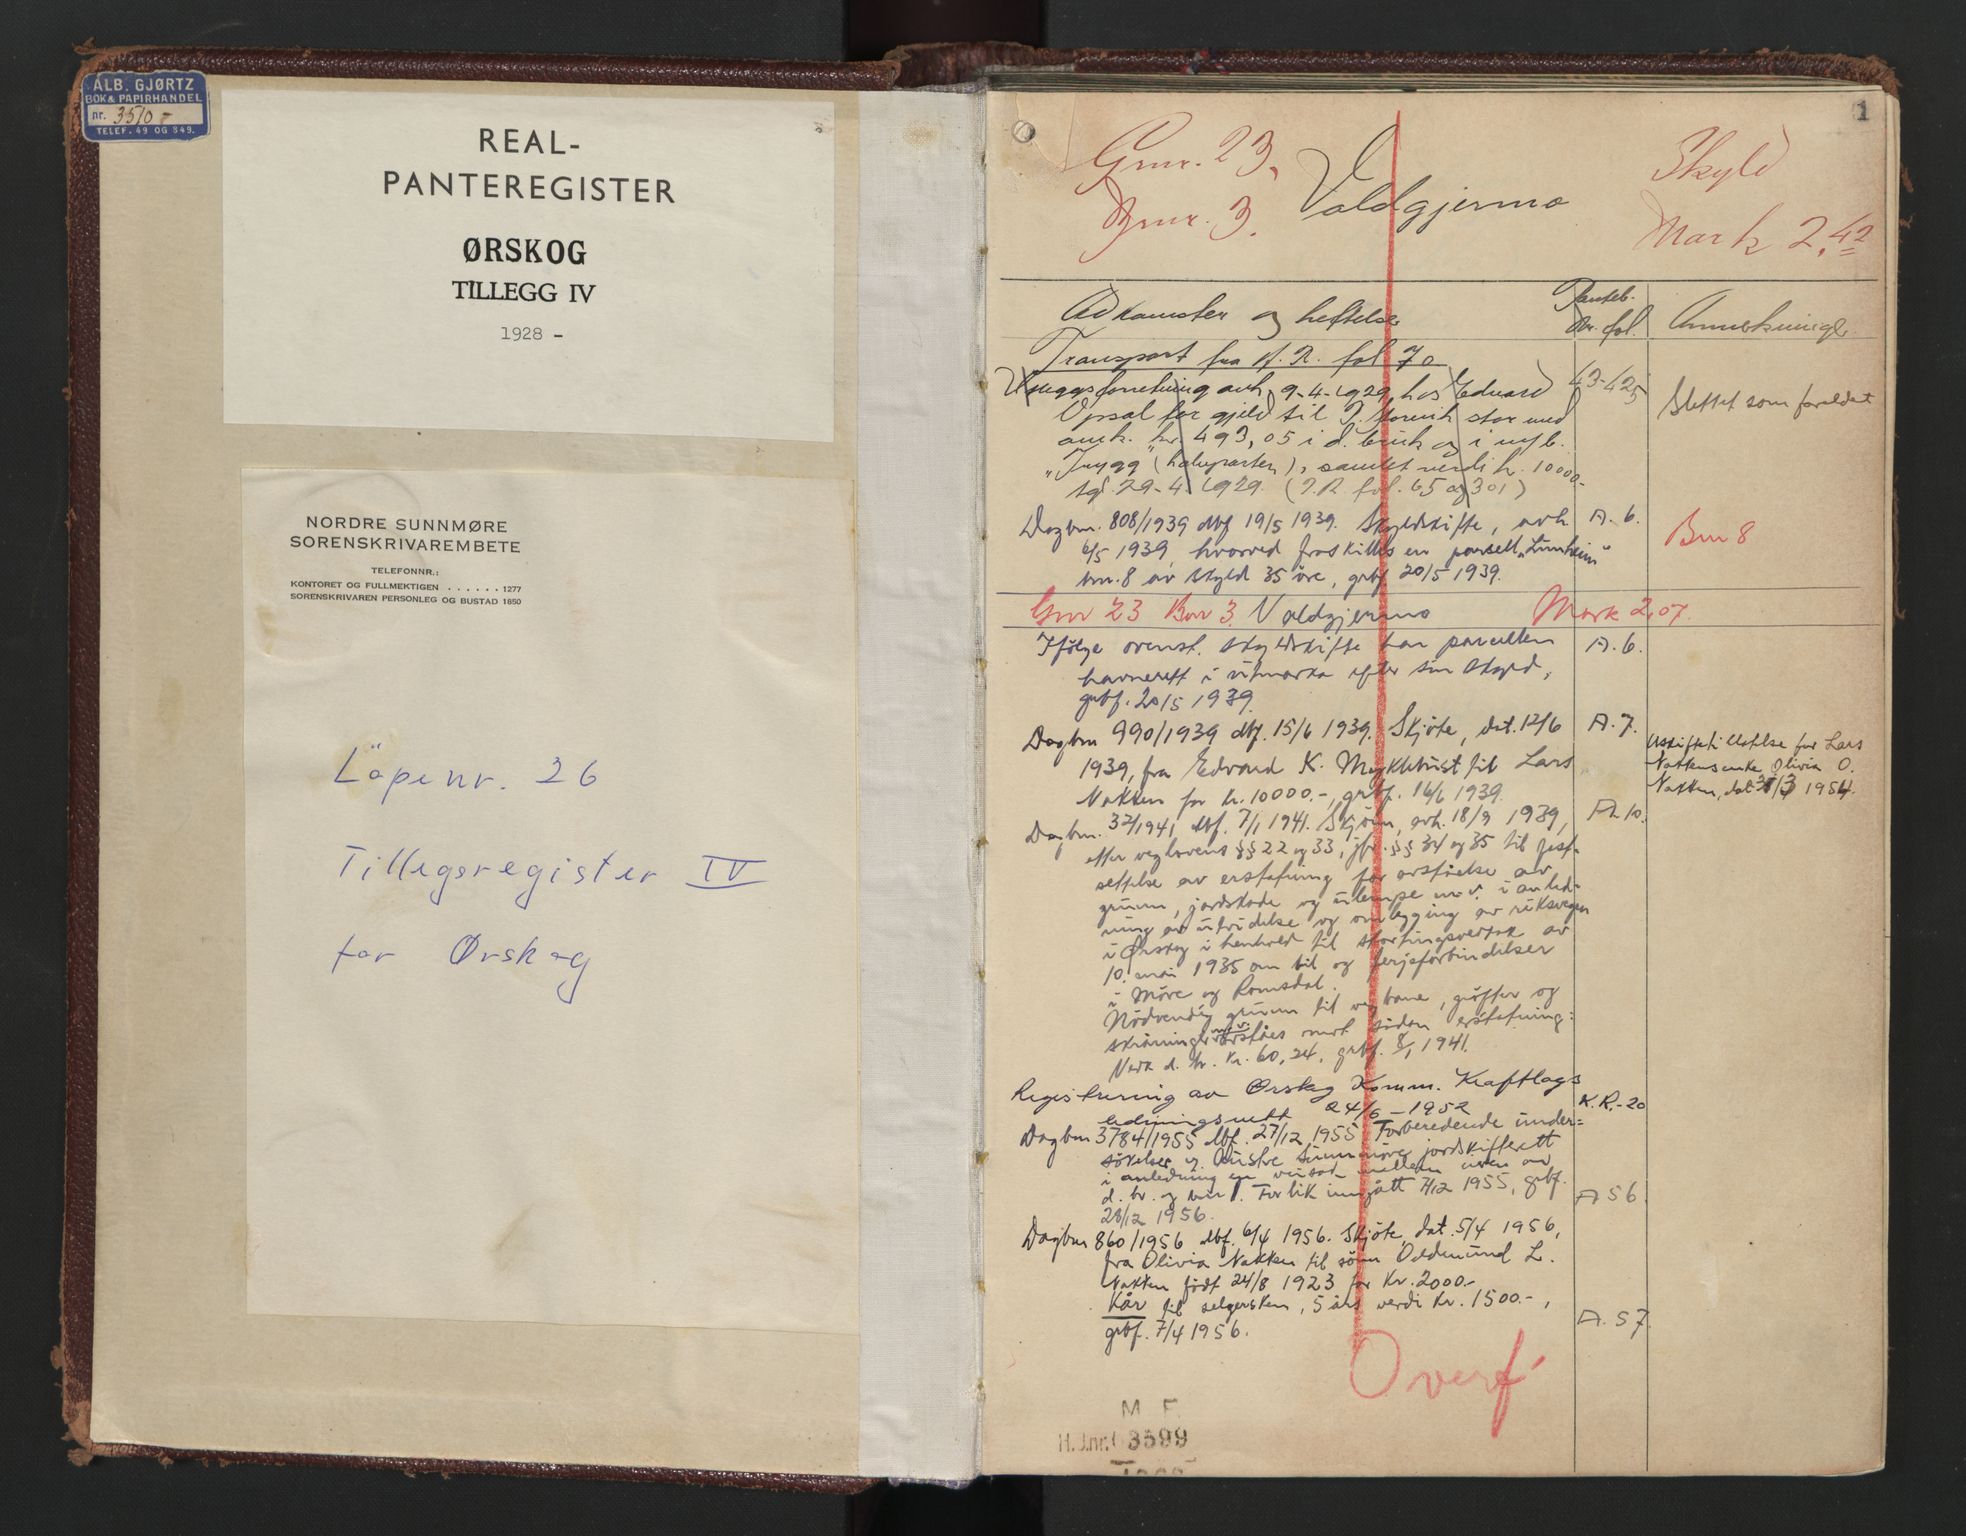 ALB. GJØRTZ
BOK & PAPIRHANDEL
nr. 3510 -
TELEF. 49 OG 849.
REAL-
PANTEREGISTER
ØRSKOG
TILLEGG IV
1928 -
NORDRE SUNNMØRE
SORENSKRIVAREMBETE
TELEFONNR.:
KONTORET OG FULLMEKTIGEN . . . . . . 1277
SORENSKRIVAREN PERSONLEG OG BUSTAD 1850
Löpenr. 26
Tillegsregister IV
for Ørskog
1
Gnr. 23. Valdgjermo Skyld
Bnr. 3. Mark 2,42
Adkomster og heftelser Panteb. Nr. fol. Anmerkninger
Transport fra A. R. fol 70
avh. 9-4-1929 hos Edvard 43-425 Slettet som foreldet
Opsal for gjeld til stor med
kr. 493,05 i d. bruk og i
"Trygg" (halvparten), samlet verdi kr. 10000.-
tgl. 29-4-1929. (P.R. fol. 65 og 301)
Dagbnr. 808/1939 dbf 19/5 1939. Skyldskifte, avh. A. 6.
6/5 1939, hvorved fraskilles en parsell Bnr 8
bnr. 8 av skyld 35 öre, grbf 20/5 1939.
Gnr 23 Bnr 3. Valdgjermo Mark 2,07.
Ifölge ovenst. skyldskifte har parcellen A. 6.
havnerett i utmarka efter sin skyld,
grbf. 20/5 1939.
Dagbnr 990/1939 dbf. 15/6 1939. Skjöte, dat. 12/6 A. 7.
1939, fra Edvard K. Myklebust til Lars
Nakken for kr. 10000.-, grbf. 16/6 1939.
Uskiftetillatelse for Lars
Nakkens enke Olivia O.
Nakken, dat. 1954.
Dagbnr. 32/1941 dbf. 7/1 1941. Skjönn, avh. 18/9 1939, A. 10.
efter veglovens §§ 22 og 33, jfr. §§ 34 og 35 til fast-
settelse av erstatning for avståelse av
grunn, jordskade og ulempe m.v. i anled-
ning av utvidelse og omlegging av riksvegen
i Ørskog i henhold til stortingsvedtak av
10. mai 1935 om bil og ferjeforbindelser
i Möre og Romsdal.
Nödvendig grunn til vegbane, gröfter og
skråninger m.v. avståes mot sådan erstatning:
Nærv. d. br. kr. 60,24, grbf. 8/1 1941.
Registrering av Ørskog Komm. Kraftlags K.R.-20
ledningsnett 24/6-1952
Dagbnr 3784/1955 dbf. 27/12 1955 Forberedende under-
sökelser v. Nordre Sunnmöre jordskifterett
i anledning en mellem eieren av
d. br. og bnr 1. Forlik inngått 7/12 1955, grbf. A 56.
28/12 1956.
Dagbnr 860/1956 dbf. 6/4 1956. Skjöte, dat. 5/4 1956,
fra Olivia Nakken til sönn Oddmund L.
Nakken födt 24/8 1923 for kr. 2000.-
Kår til selgersken, 5 års verdi kr. 1500.-,
grbf. 7/4 1956. A. 57.
Overf.
M. F.
H.J.nr. 03599